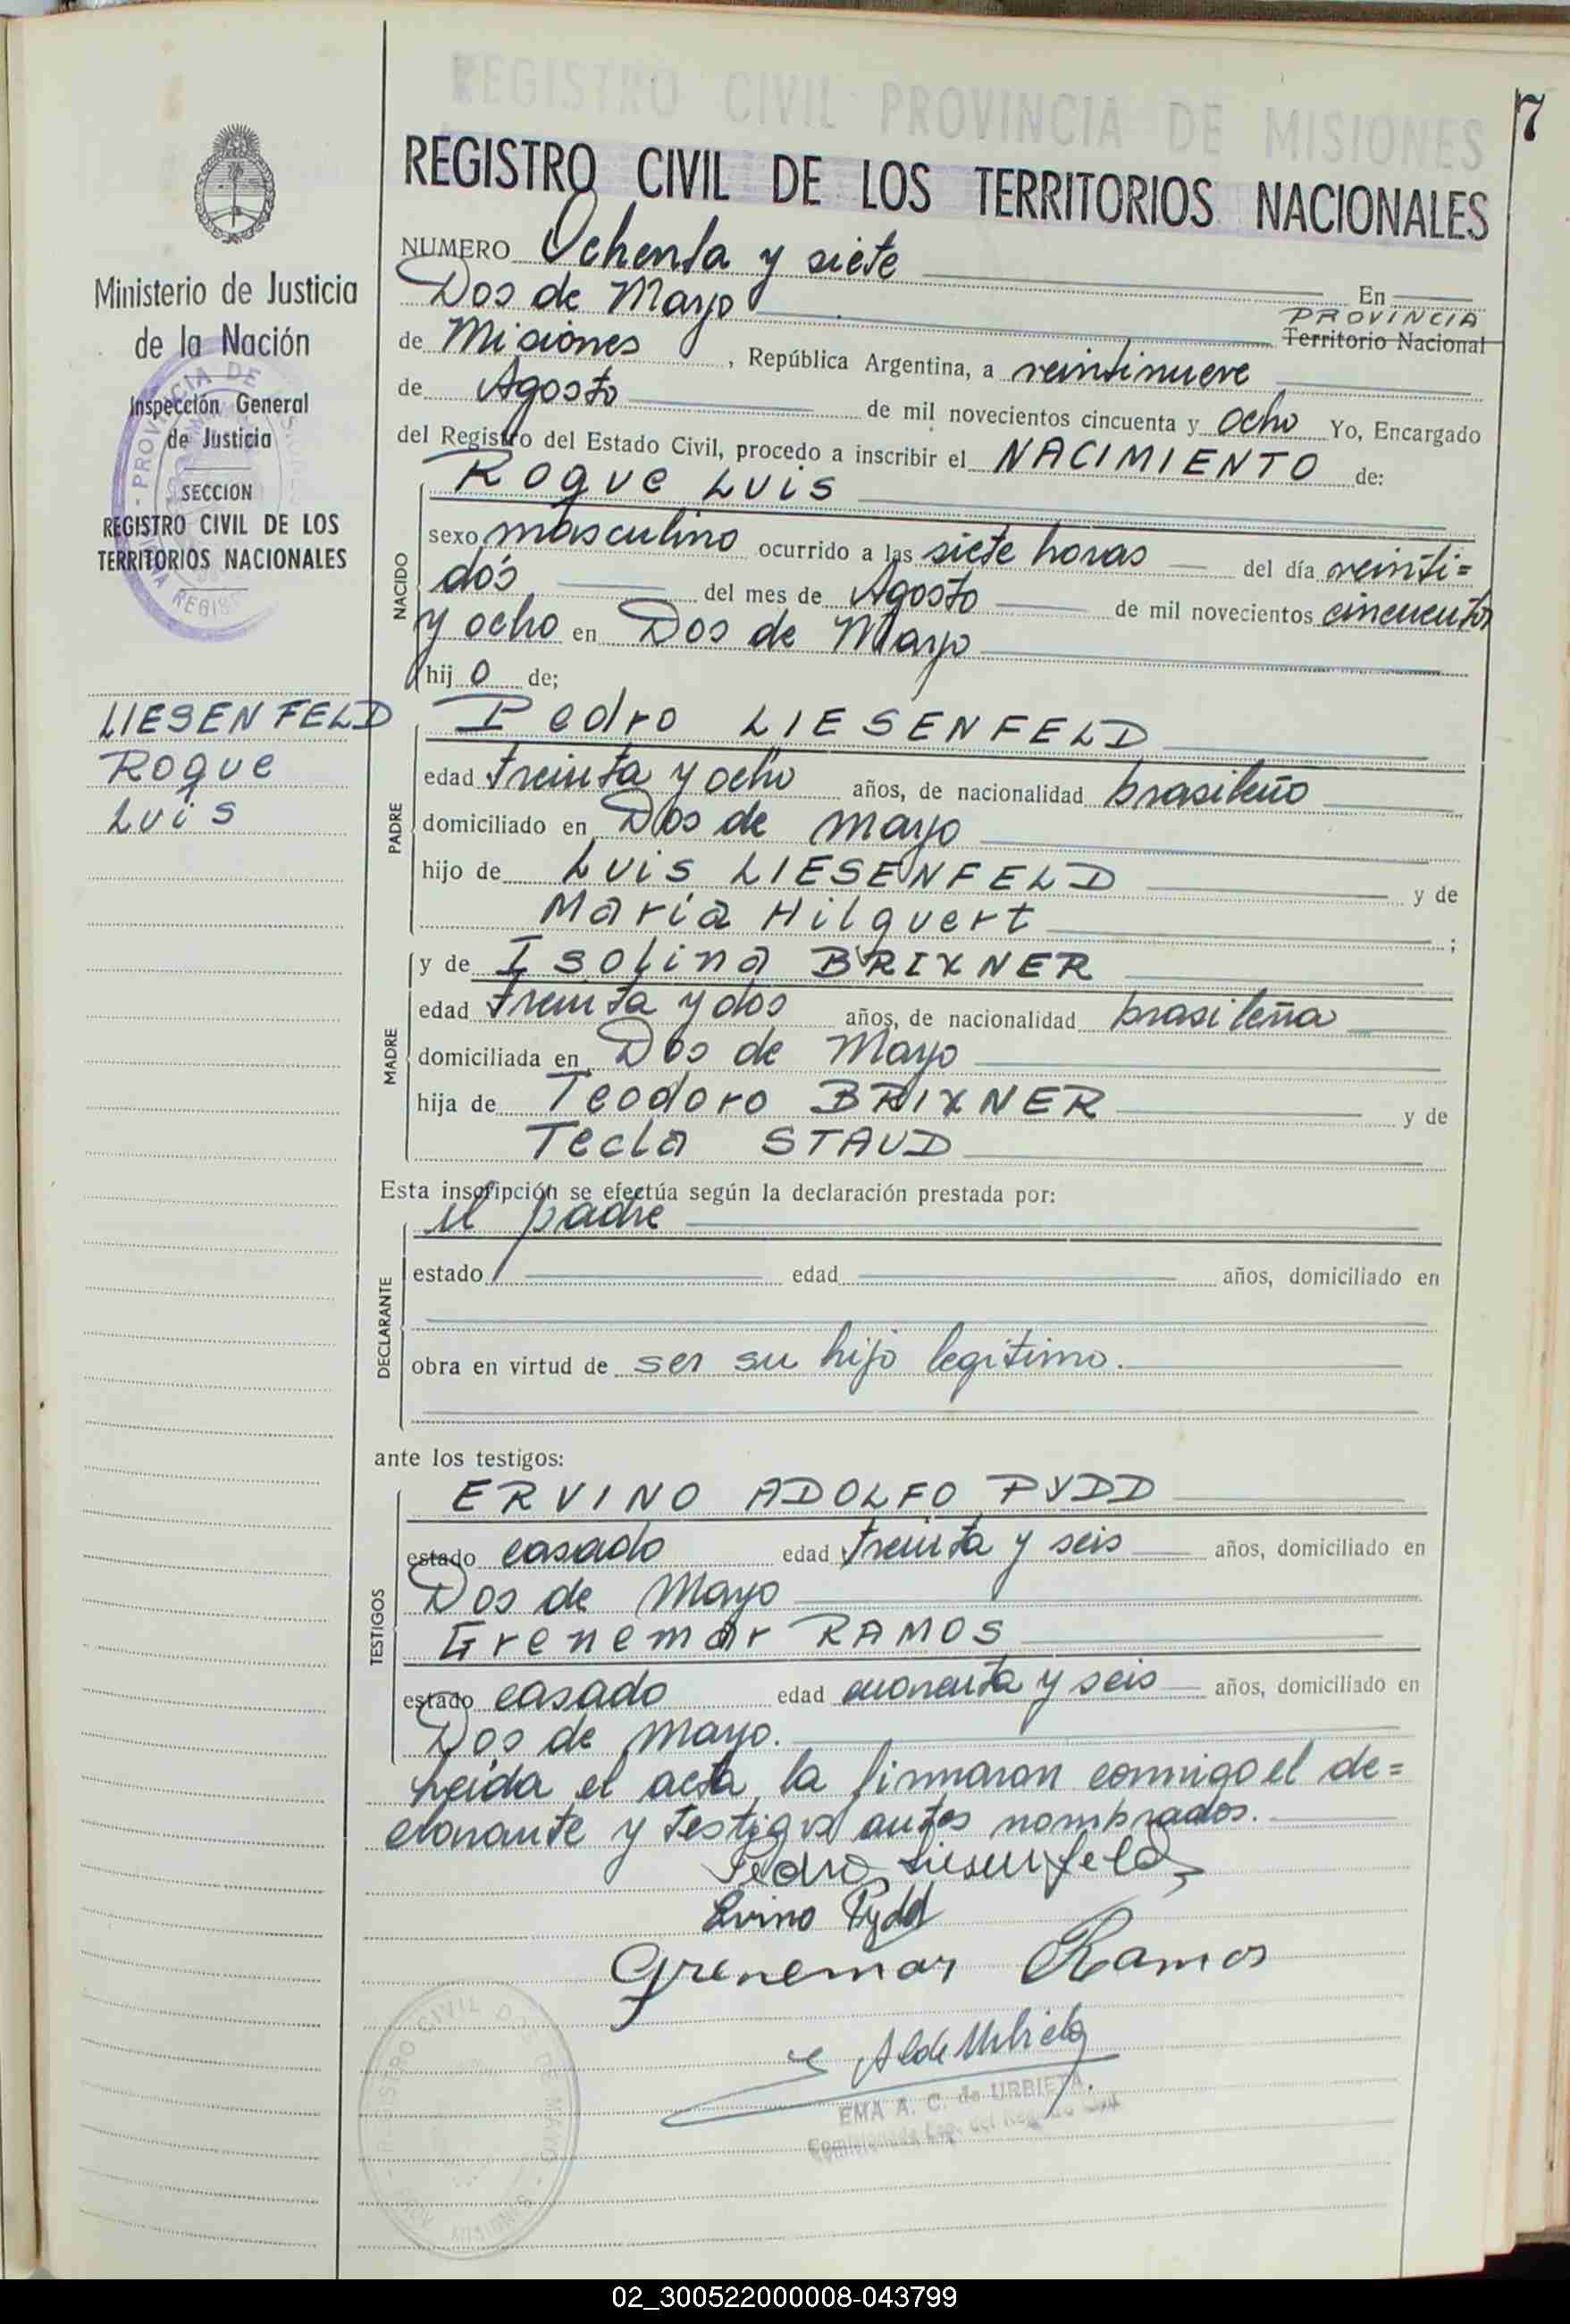 REGISTRO CIVIL PROVINCIA DE MISIONES
7
REGISTRO CIVIL DE LOS TERRITORIOS NACIONALES
Ministerio de Justicia
de la Nación
Inspección General
de Justicia
SECCION
REGISTRO CIVIL DE LOS
TERRITORIOS NACIONALES
LIESENFELD
Roque
Luis
NUMERO Ochenta y siete
En
Dos de Mayo PROVINCIA Territorio Nacional
de Misiones, República Argentina, a veintinueve
de Agosto de mil novecientos cincuenta y ocho Yo, Encargado
del Registro del Estado Civil, procedo a inscribir el NACIMIENTO de:
NACIDO
Roque Luis
sexo masculino ocurrido a las siete horas del día veinti=
dós del mes de Agosto de mil novecientos cincuenta
y ocho en Dos de Mayo
hijo de;
PADRE
Pedro LIESENFELD
edad treinta y ocho años, de nacionalidad brasileño
domiciliado en Dos de mayo
hijo de Luis LIESENFELD y de
Maria Hilguert ;
MADRE
y de Isolina BRIXNER
edad treinta y dos años, de nacionalidad brasileña
domiciliada en Dos de Mayo
hija de Teodoro BRIXNER y de
Tecla STAUD
Esta inscripción se efectúa según la declaración prestada por:
DECLARANTE
el padre
estado edad años, domiciliado en
obra en virtud de ser su hijo legitimo.
ante los testigos:
TESTIGOS
ERVINO ADOLFO PYDD
estado casado edad treinta y seis años, domiciliado en
Dos de Mayo
Grenemar RAMOS
estado casado edad cuarenta y seis años, domiciliado en
Dos de mayo.
Leida el acta, la firmaron conmigo el de=
clarante y testigos antes nombrados.
Pedro Liesenfeld
Ervino Pydd
Grenemar Ramos
A C de Urbieta
EMA A. C. de URBIETA
REGISTRO CIVIL DOS DE MAYO
MISIONES
02_300522000008-043799